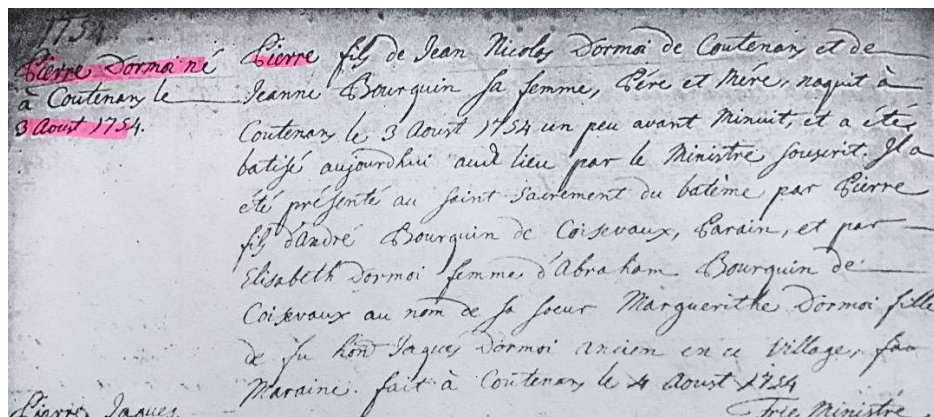 1754.
Pierre Dormoi né
à Coutenans le
3 Aoust 1754.
Pierre fils de Jean Nicolas Dormoi de Coutenans et de
Jeanne Bourquin sa femme, Père et Mère, naquit à
Coutenans le 3 Aoust 1754 un peu avant Minuit, et a été
batisé aujourdhui aud lieu par le Ministre souscrit. Il a
été présenté au saint Sacrement du batême par Pierre
fils d'André Bourquin de Coisevaux, Parain, et par
Elisabeth Dormoi femme d'Abraham Bourquin de
Coisevaux au nom de sa soeur Marguerithe Dormoi fille
de fu hond Jaques Dormoi ancien en ce Village, sa
Maraine. fait à Coutenans le 4 Aoust 1754
Pierre Jaques
Ministre